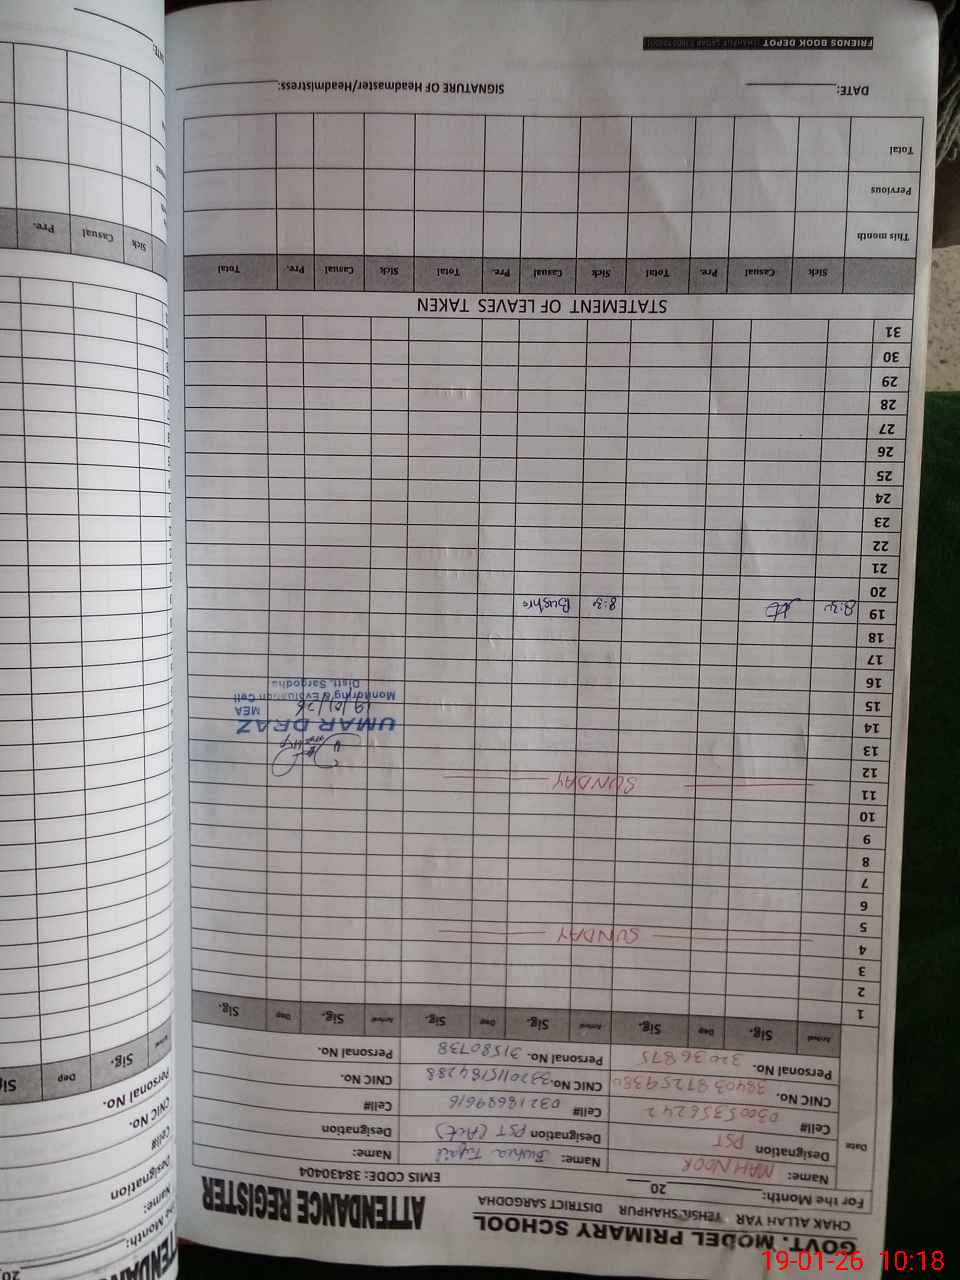 GOVT. MODEL PRIMARY SCHOOL
CHAK ALLAH YAR TEHSIL SHAHPUR DISTRICT SARGODHA
ATTENDANCE REGISTER
For the Month: 20 EMIS CODE: 38430404
Date
Name: MAH NOOR
Designation PST
Cell# 03005356242
CNIC No. 3840389725938
Personal No. 32036875
Name: Bushra
Designation PST
Cell# 03218689616
CNIC No. 3320115184288
Personal No. 31580738
Name:
Designation
Cell#
CNIC No.
Personal No.
Arrival Sig. Dep Sig. Arrival Sig. Dep Sig. Arrival Sig. Dep Sig.
1
2
3
4 SUNDAY
5
6
7
8
9
10
11 SUNDAY
12
13
14
15
16
17
18
19 8:30 8:30 Bushra
20
21
22
23
24
25
26
27
28
29
30
31
UMAR DRAZ
MEA
Monitoring & Evaluation Cell
Distt. Sargodha
19/01/26
STATEMENT OF LEAVES TAKEN
Sick Casual Pre. Total Sick Casual Pre. Total Sick Casual Pre. Total
This month
Pervious
Total
DATE: SIGNATURE OF Headmaster/Headmistress:
FRIENDS BOOK DEPOT
the Month: 20
Name:
Designation
Cell#
CNIC No.
Personal No.
Sig. Dep Sig.
Sick Casual Pre.
19-01-26 10:18